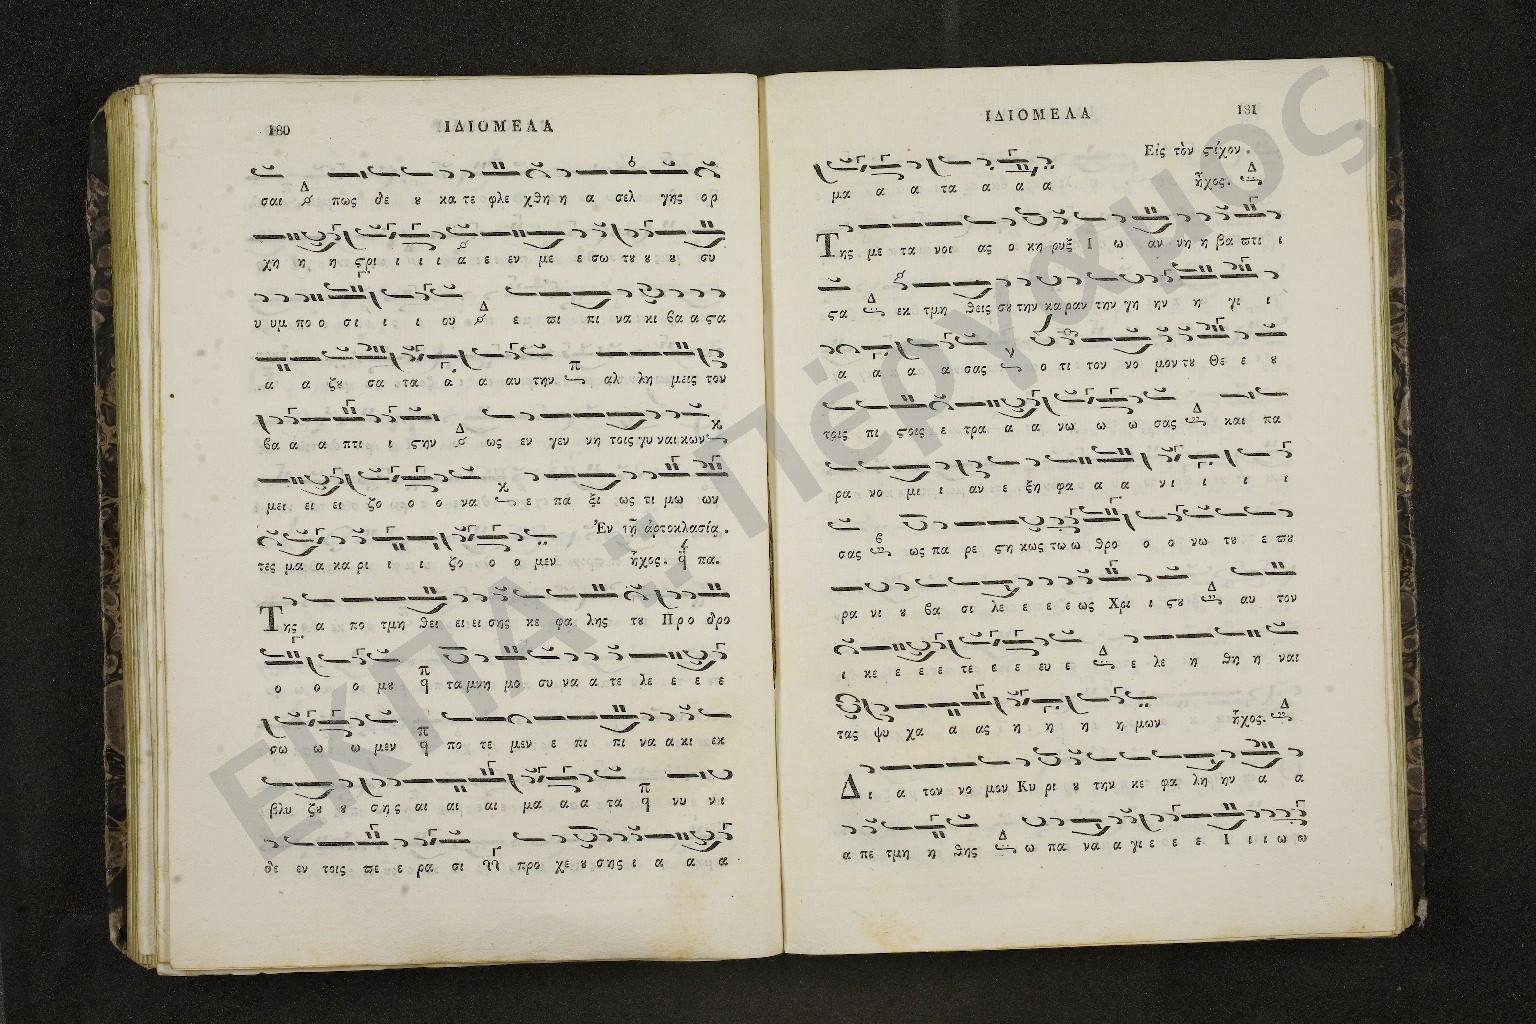 180 ΙΔΙΟΜΕΛΑ
σαι Δ πως θε ου κα τε φλε χθη η α σελ γης ορ
χη η η ϛρι ι ι ι α ε εν με ε σω του ου ου συ
υ υμ πο ο σι ι ι ου Δ ε πι πι να κι βα α ϛα
α α ζου σα τα α α αυ την π αλ λη μεις τον
βα α α πτι ι ϛην Δ ως εν γεν νη τοις γυ ναι κων κ
μει ει ει ζο ο ο να κ ε πα ξι ως τι μω ων
Ἐν τῇ ἀρτοκλασίᾳ.
τες μα α κα ρι ι ι ζο ο ο μεν ἦχος. q πα.
Της α πο τμη θει ει ει σης κε φα λης του Προ δρο
ο ο ο μου π q τα μνη μο συ να α τε λε ε ε ε
σω ω ω μεν π q πο τε μεν ε πι πι να α κι εκ
βλυ ζου ου σης αι αι αι μα α α τα π q νυ νι
θε εν τοις πε ε ρα σι προ χε ου σης ι α α α
ΙΔΙΟΜΕΛΑ 181
Εἰς τὸν ϛίχον.
μα α α τα α α α ἦχος. Δ
Της με τα νοι ας ο κη ρυξ Ι ω αν νη η βα πτι ι
ϛα Δ εκ τμη θεις σου την κα ραν την γη ην η γι ι
α α α α σας ν ο τι τον νο μον του Θε ε ου
τοις πι ϛοις ε τρα α α νω ω ω σας Δ και πα
ρα νο μι ι αν ε ξη φα α α νι ι ι ι ι
σας β ως πα ρε ϛη κως τω ω θρο ο ο νω του ε που
ρα νι ου βα σι λε ε ε ε ως Χρι ι ϛου Δ αυ τον
ι κε ε ε ε τε ε ε ευ ε Δ ε λε η θη η ναι
τας ψυ χα α ας η η η η μων ἦχος. Δ
Δι α τον νο μον Κυ ρι ου την κε φα λη ην α α
α πε τμη η θης Δ ω πα να α γι ε ε ε Ι ι ι ω ω
ΕΚΠΑ :: Πέργαμος